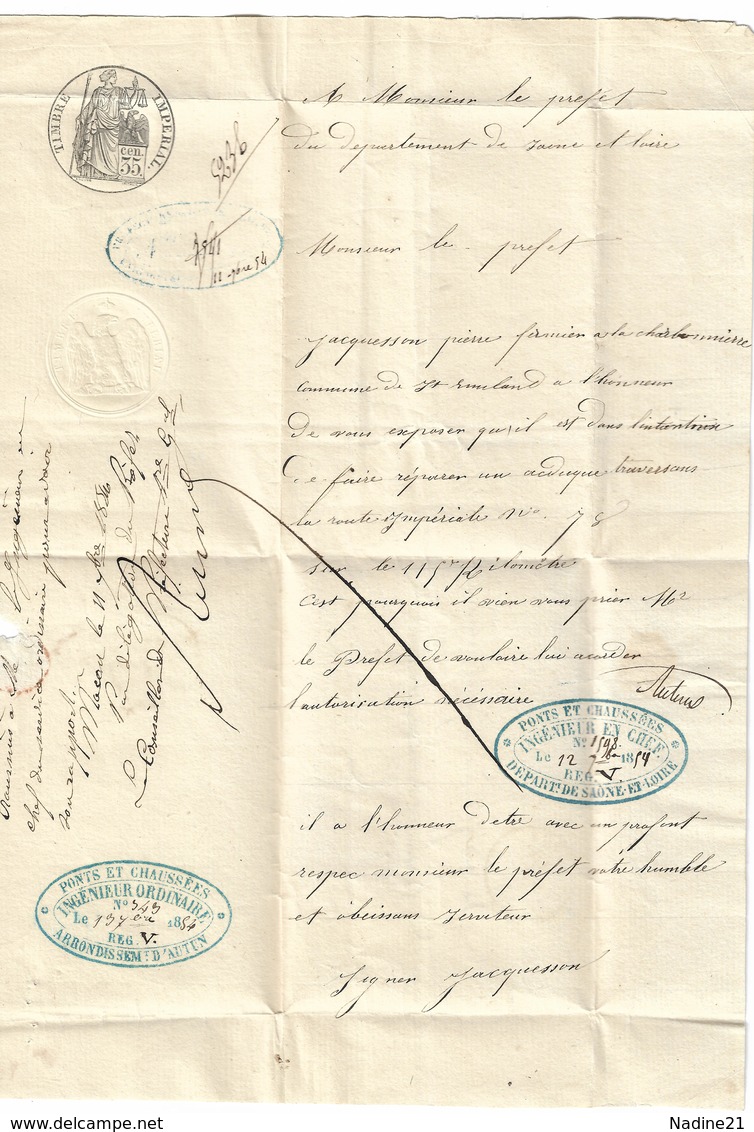 TIMBRE IMPERIAL.
cen.
35
A Monsieur le prefet
du departement de saone et loire
3941
11 7bre 54
Monsieur le prefet
jacquesson pierre fermier a la charbonnierre
commune de st Emiland a l'honneur
de vous exposer qu'il est dans lintention
de faire réparer un acduque traversans
la route impériale No. 78
sur le 115e kilomètre
c'est pourquois il vien vous prier Mr
le Prefet de vouloire lui acorder
l'autorisation nécéssaire
Autun
PONTS ET CHAUSSÉES
INGÉNIEUR EN CHEF
No. 1598
Le 12 7bre 1854
REG. V.
DÉPARTt. DE SAÔNE-ET-LOIRE
il a l'honneur detre avec un profont
respec monsieur le préfet votre humble
et obeissans serviteur
signer jacquesson
transmis à M. l'Ingénieur en
chef du service ordinaire pour avoir
son rapport.
Macon le 11 7bre 1854
Par délégation du Préfet
Le Conseiller de Préfecture Sre Gal
PONTS ET CHAUSSÉES
INGÉNIEUR ORDINAIRE
No 343
Le 13 7bre 1854
REG. V.
ARRONDISSEMt. D'AUTUN
Nadine21